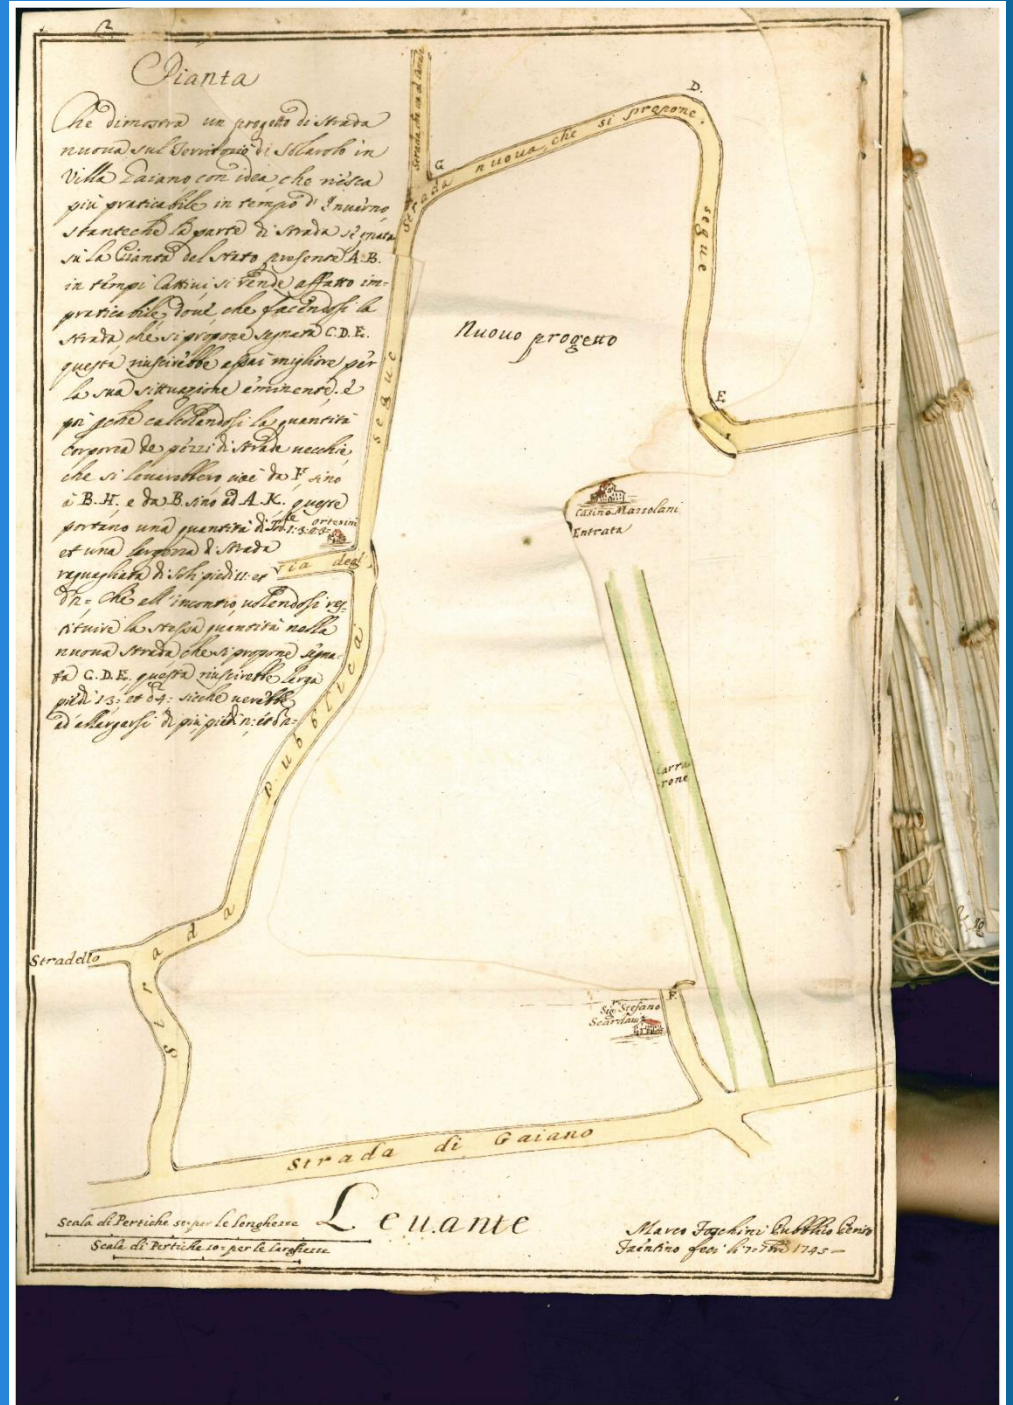 Pianta
Che dimostra un progetto di strada
nuova sul Territorio di Solarolo in
Villa Gaiano con idea che riesca
più praticabile in tempo d'Inverno,
stanteche la parte di strada segnata
sù la Pianta del stato presente A.B.
in tempi Cattivi si rende affatto im-
praticabile, dove che facendosi la
strada che si propone segnata C.D.E.
questa riuscirebbe assai migliore per
la sua sittuazione eminente. E
poi calcolandosi la quantità
corporea de pezzi di strada vecchie
che si leverebbero cioè da F sino
à B.H. e da B. sino ad A.K. queste
portano una quantità di
et una largezza di strada
raguagliata di soli piedi
che all'incontro volendosi res-
tituire la stessa quantità nella
nuova strada che si propone segna-
ta C.D.E. questa riuscirebbe larga
piedi 13: et 4: sicche verebbe
ad allargarsi di più piedi
Strada che va al
G
D.
Strada nuova che si propone.
segue
E
Nuovo progetto
segue
Casino Mazzolani
Entrata
ortesini
Via degl'
Carra
rone
Strada Publica
Stradello
F.
Sig. Stefano
Scardavi
Strada di Gaiano
Levante
Scala di Pertiche 50: per le longhezze
Scala di Pertiche 10: per le larghezze
Marco Foschini Pubblico Perito
Faentino feci li 7: 1745